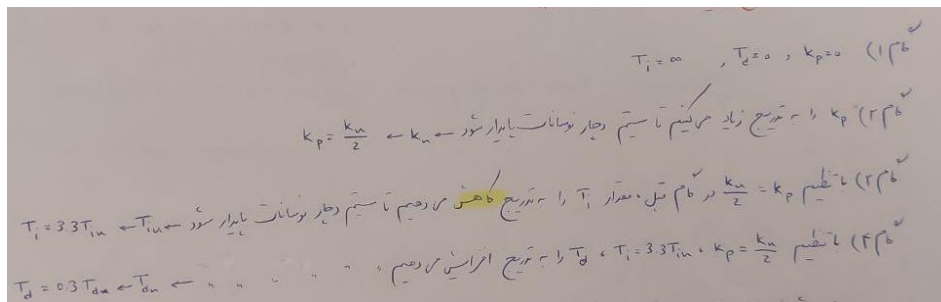 گام ۱) Kp=0 ، Td=0 ، Ti=∞
گام ۲) Kp را به تدریج زیاد می‌کنیم تا سیستم دچار نوسانات پایدار شود ← Ku ← Kp = Ku/2
گام ۳) با تنظیم Kp = Ku/2 در گام قبل، مقدار Ti را به تدریج کاهش می‌دهیم تا سیستم دچار نوسانات پایدار شود ← Tiu ← Ti = 3.3Tiu
گام ۴) با تنظیم Kp = Ku/2 ، Ti = 3.3Tiu ، Td را به تدریج افزایش می‌دهیم " " " " " ← Tdu ← Td = 0.3Tdu